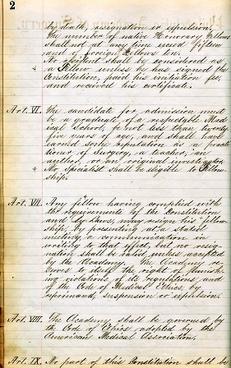 2
by death, resignation or expulsion.
The number of native Honorary Fellows
shall not at any time exceed fifteen
and of Foreign Fellows ten.
No person shall be considered as
a Fellow unless he has signed the
Constitution, paid his initiation fee,
and received his certificate.
Art. VI. The candidate for admission must
be a graduate of a respectable Med-
ical School, of not less than twenty
five years of age, and shall have
earned some reputation as a practi-
tioner of Surgery, a teacher, an
author, or an original investigator.
No Specialist shall be eligible to Fellow-
ship.
Art. VII. Any fellow having complied with
the requirements of the Constitution
and By-laws, may resign his fellow-
ship, by presenting at a stated
meeting a communication in
writing to that effect, but no resig-
nation shall be valid unless accepted
by the Academy. The Academy re-
serves to itself the right of punish-
ing violations of its regulations and
of the Code of Medical Ethics by
reprimand, suspension or expulsion.
Art. VIII. The Academy shall be governed by
the Code of Ethics adopted by the
American Medical Association.
Art. IX. No part of this Constitution shall be